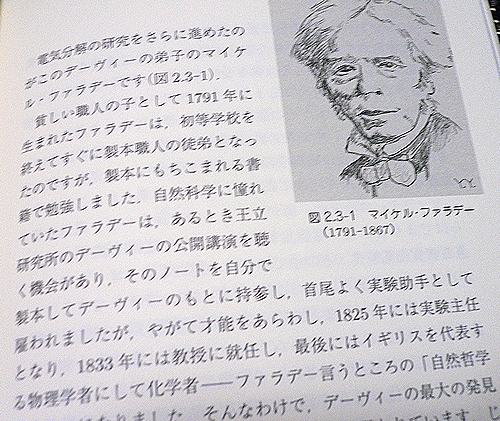 電気分解の研究をさらに進めたの
がこのデーヴィーの弟子のマイケ
ル・ファラデーです(図2.3-1).
貧しい職人の子として1791年に
生まれたファラデーは，初等学校を
終えてすぐに製本職人の徒弟となっ
たのですが，製本にもちこまれる書
籍で勉強しました．自然科学に憧れ
ていたファラデーは，あるとき王立
研究所のデーヴィーの公開講演を聴
く機会があり，そのノートを自分で
製本してデーヴィーのもとに持参し，首尾よく実験助手として
雇われましたが，やがて才能をあらわし，1825年には実験主任
となり，1833年には教授に就任し，最後にはイギリスを代表す
る物理学者にして化学者——ファラデー言うところの「自然哲学
になりました．そんなわけで，デーヴィーの最大の発見
Y.Y.
図2.3-1 マイケル・ファラデー
(1791-1867)